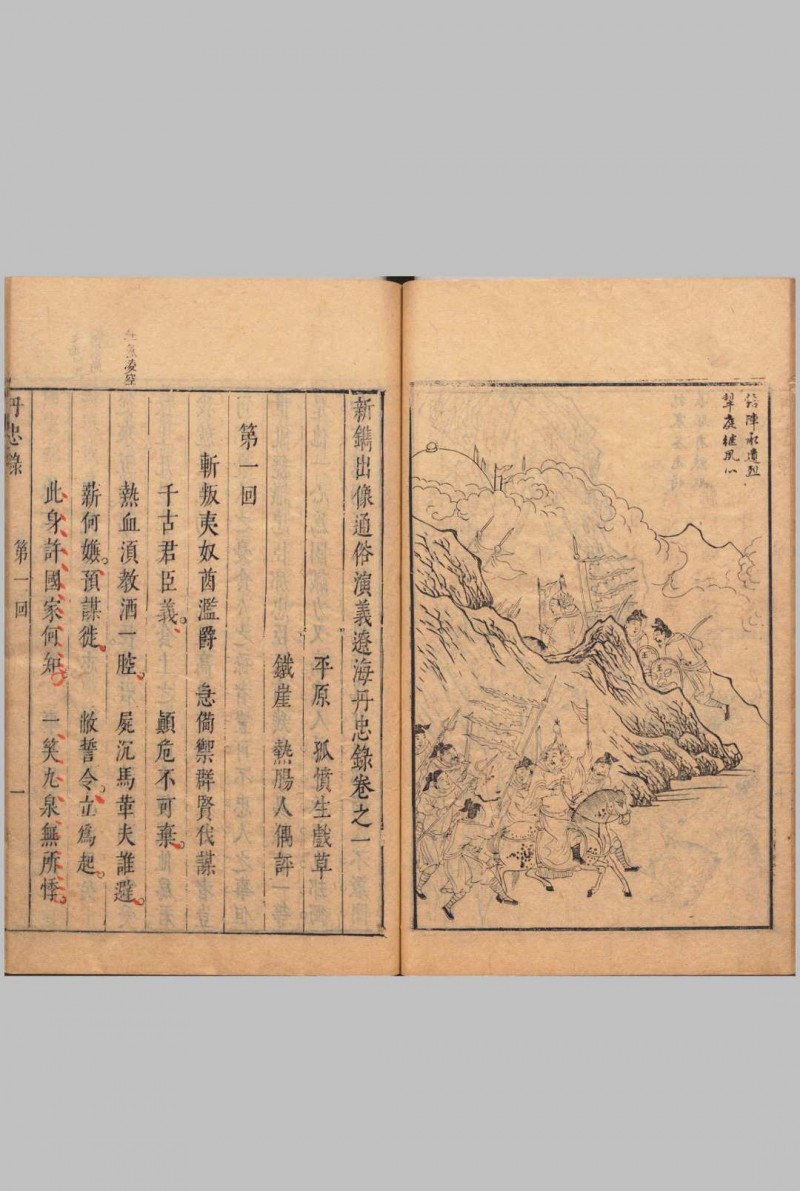 陣承遺烈
新鐫出像通俗演義遼海丹忠錄卷之一
平原 孤憤生戲草
鐵崖 熱腸人偶評
第一回
斬叛夷奴酋濫爵 急備禦群賢伐謀
千古君臣義。顛危不可棄。
熱血須教洒一腔。屍沉馬革夫誰避。
薪何嫌。預謀徙。敝誓令。立為起。
此身許國家何知。一笑九泉無所悸。
丹忠錄 第一回 一